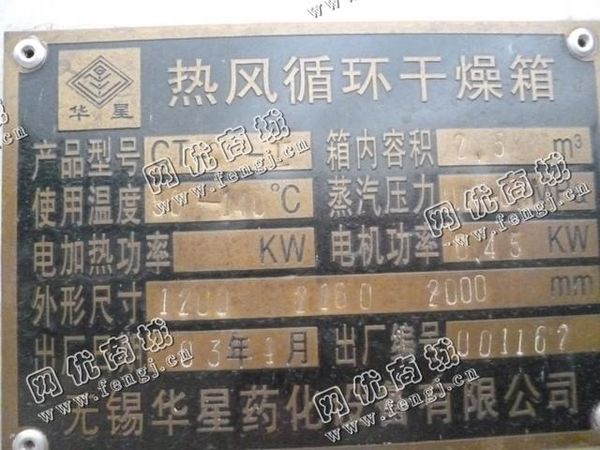 热风循环干燥箱
华星
产品型号 CT 箱内容积 2.5 m³
使用温度 ℃ 蒸汽压力
电加热功率 KW 电机功率 0.45 KW
外形尺寸 1200 2000 mm
出厂 03年 月 出厂编号 001162
无锡华星药化设备有限公司
网优商城
www.fengj.cn
网优商城
www.fengj.cn
网优商城
www.fengj.cn
网优商城
www.fengj.cn
www.fengj.cn